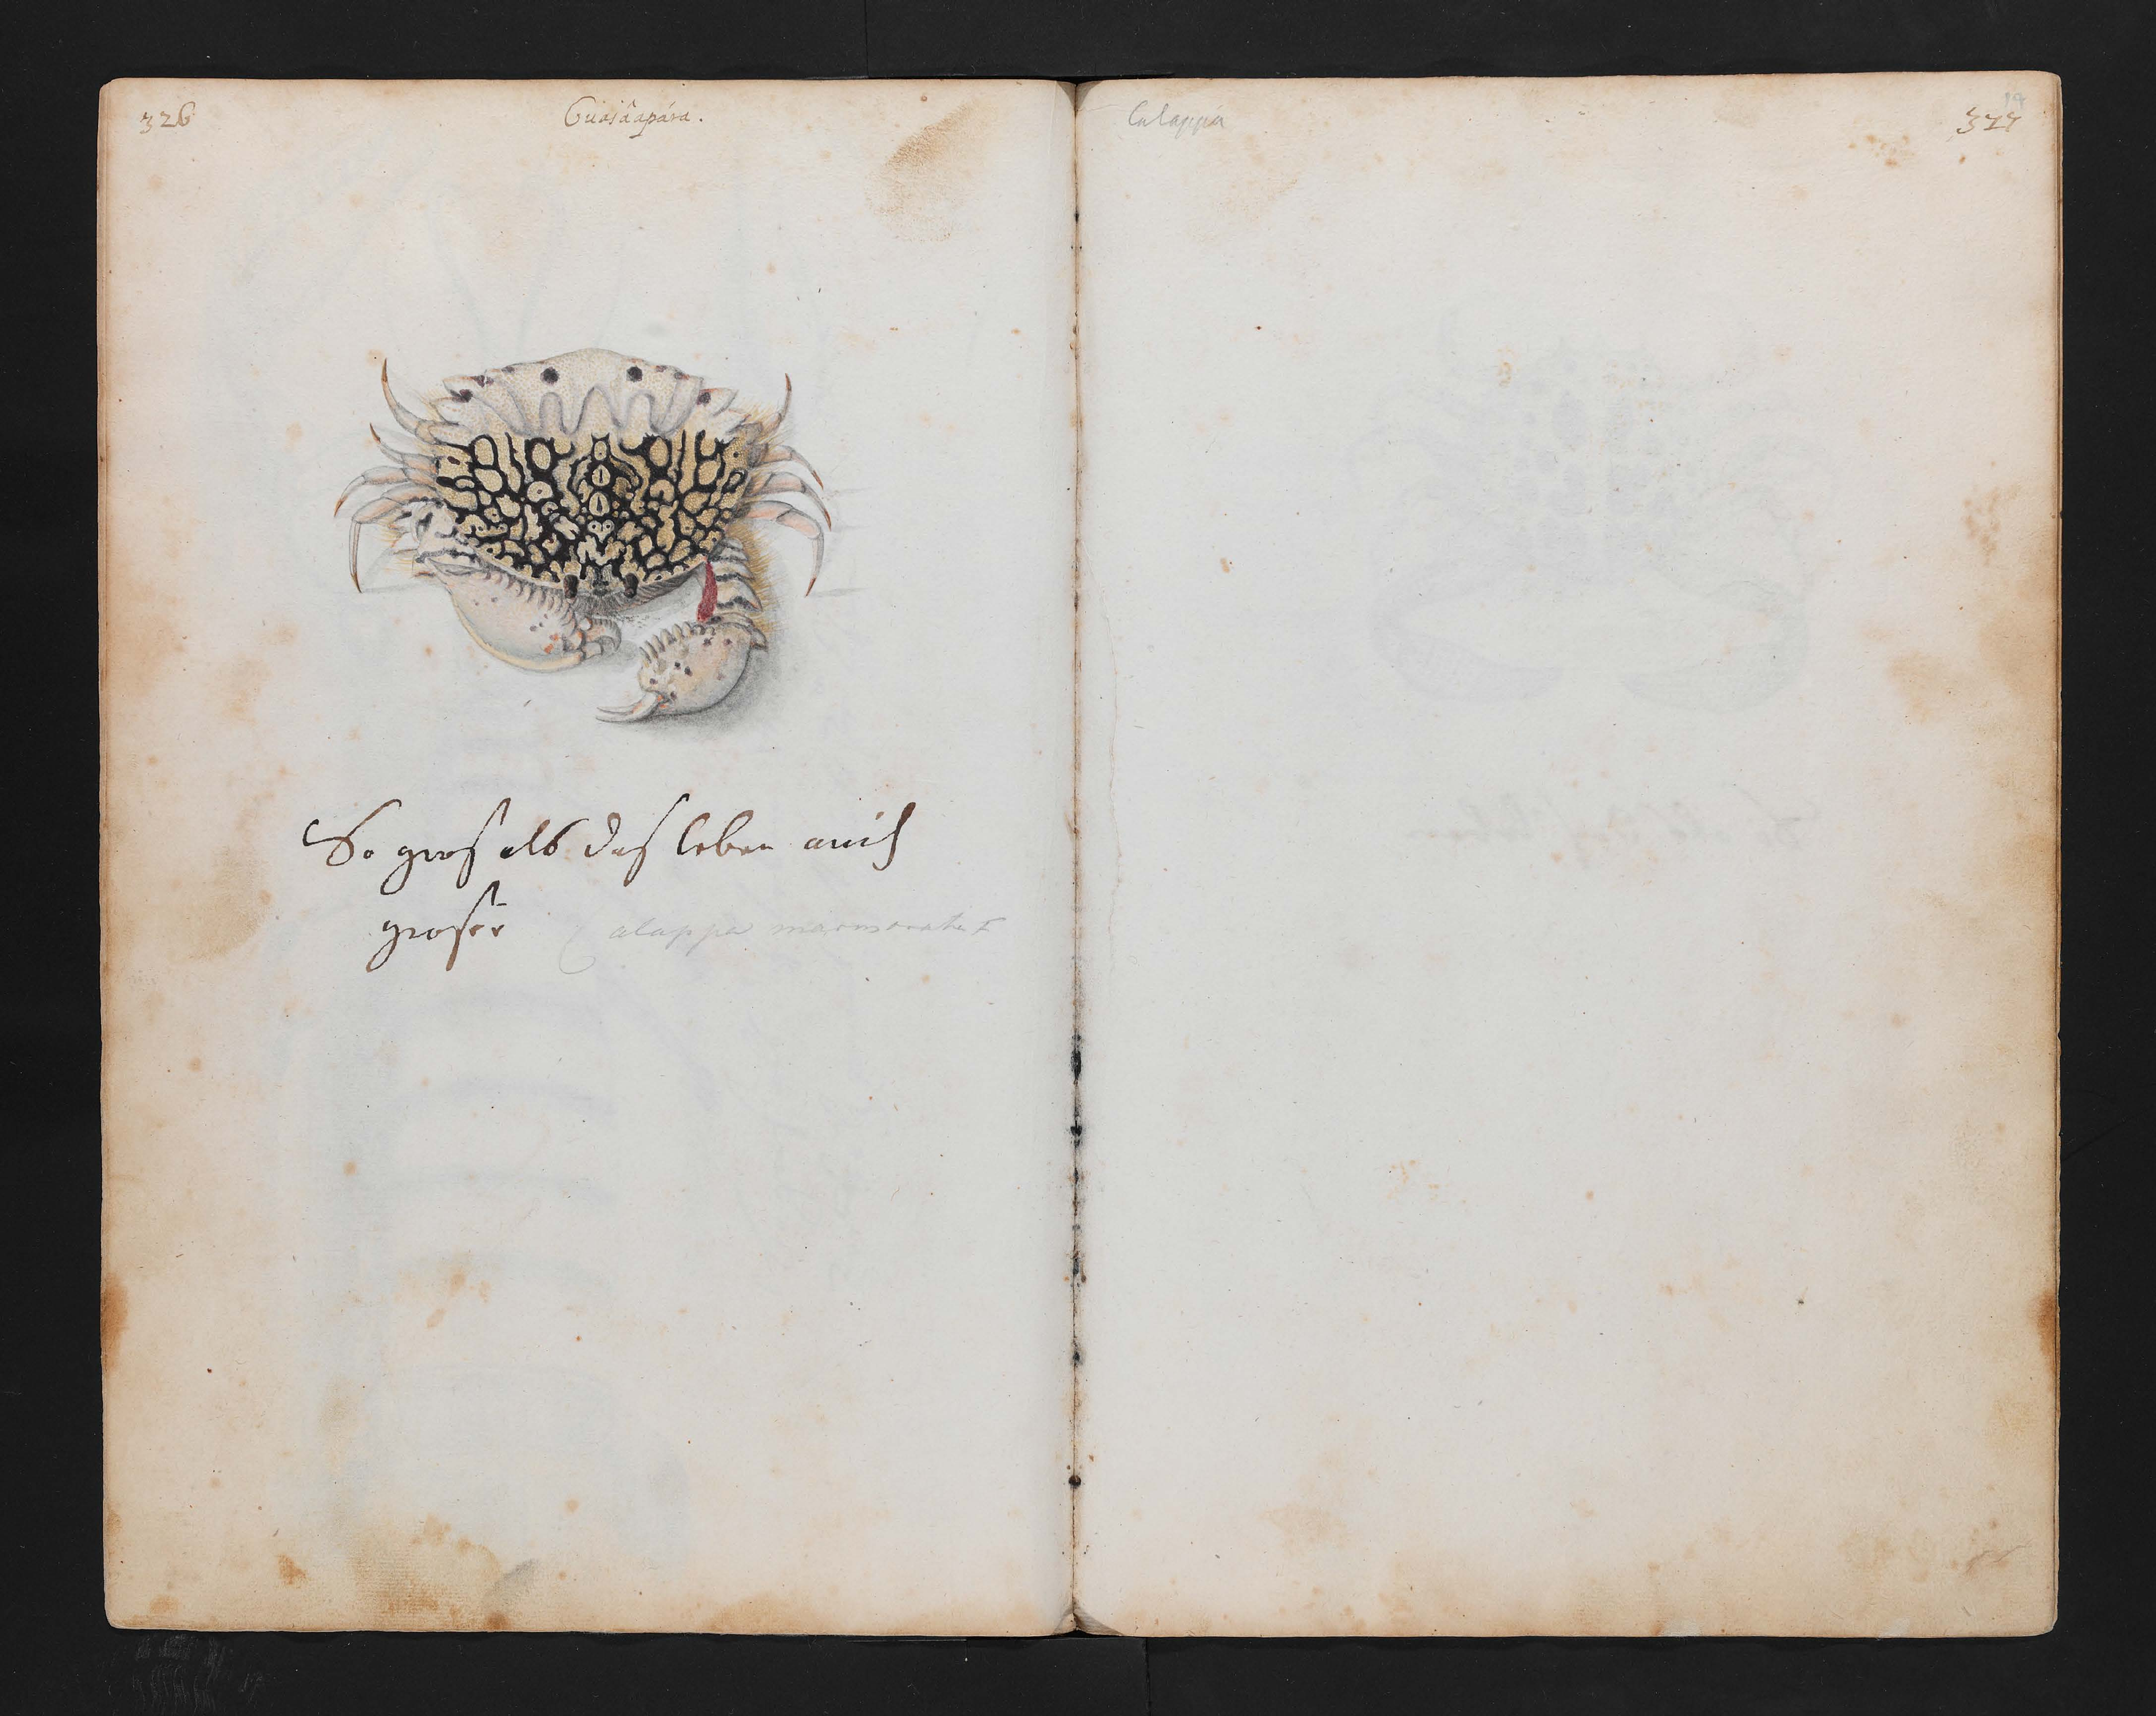 326
Guaiâapára.
So gros als das leben auch
groser
Calappa marmorata F
Calappa
19
327